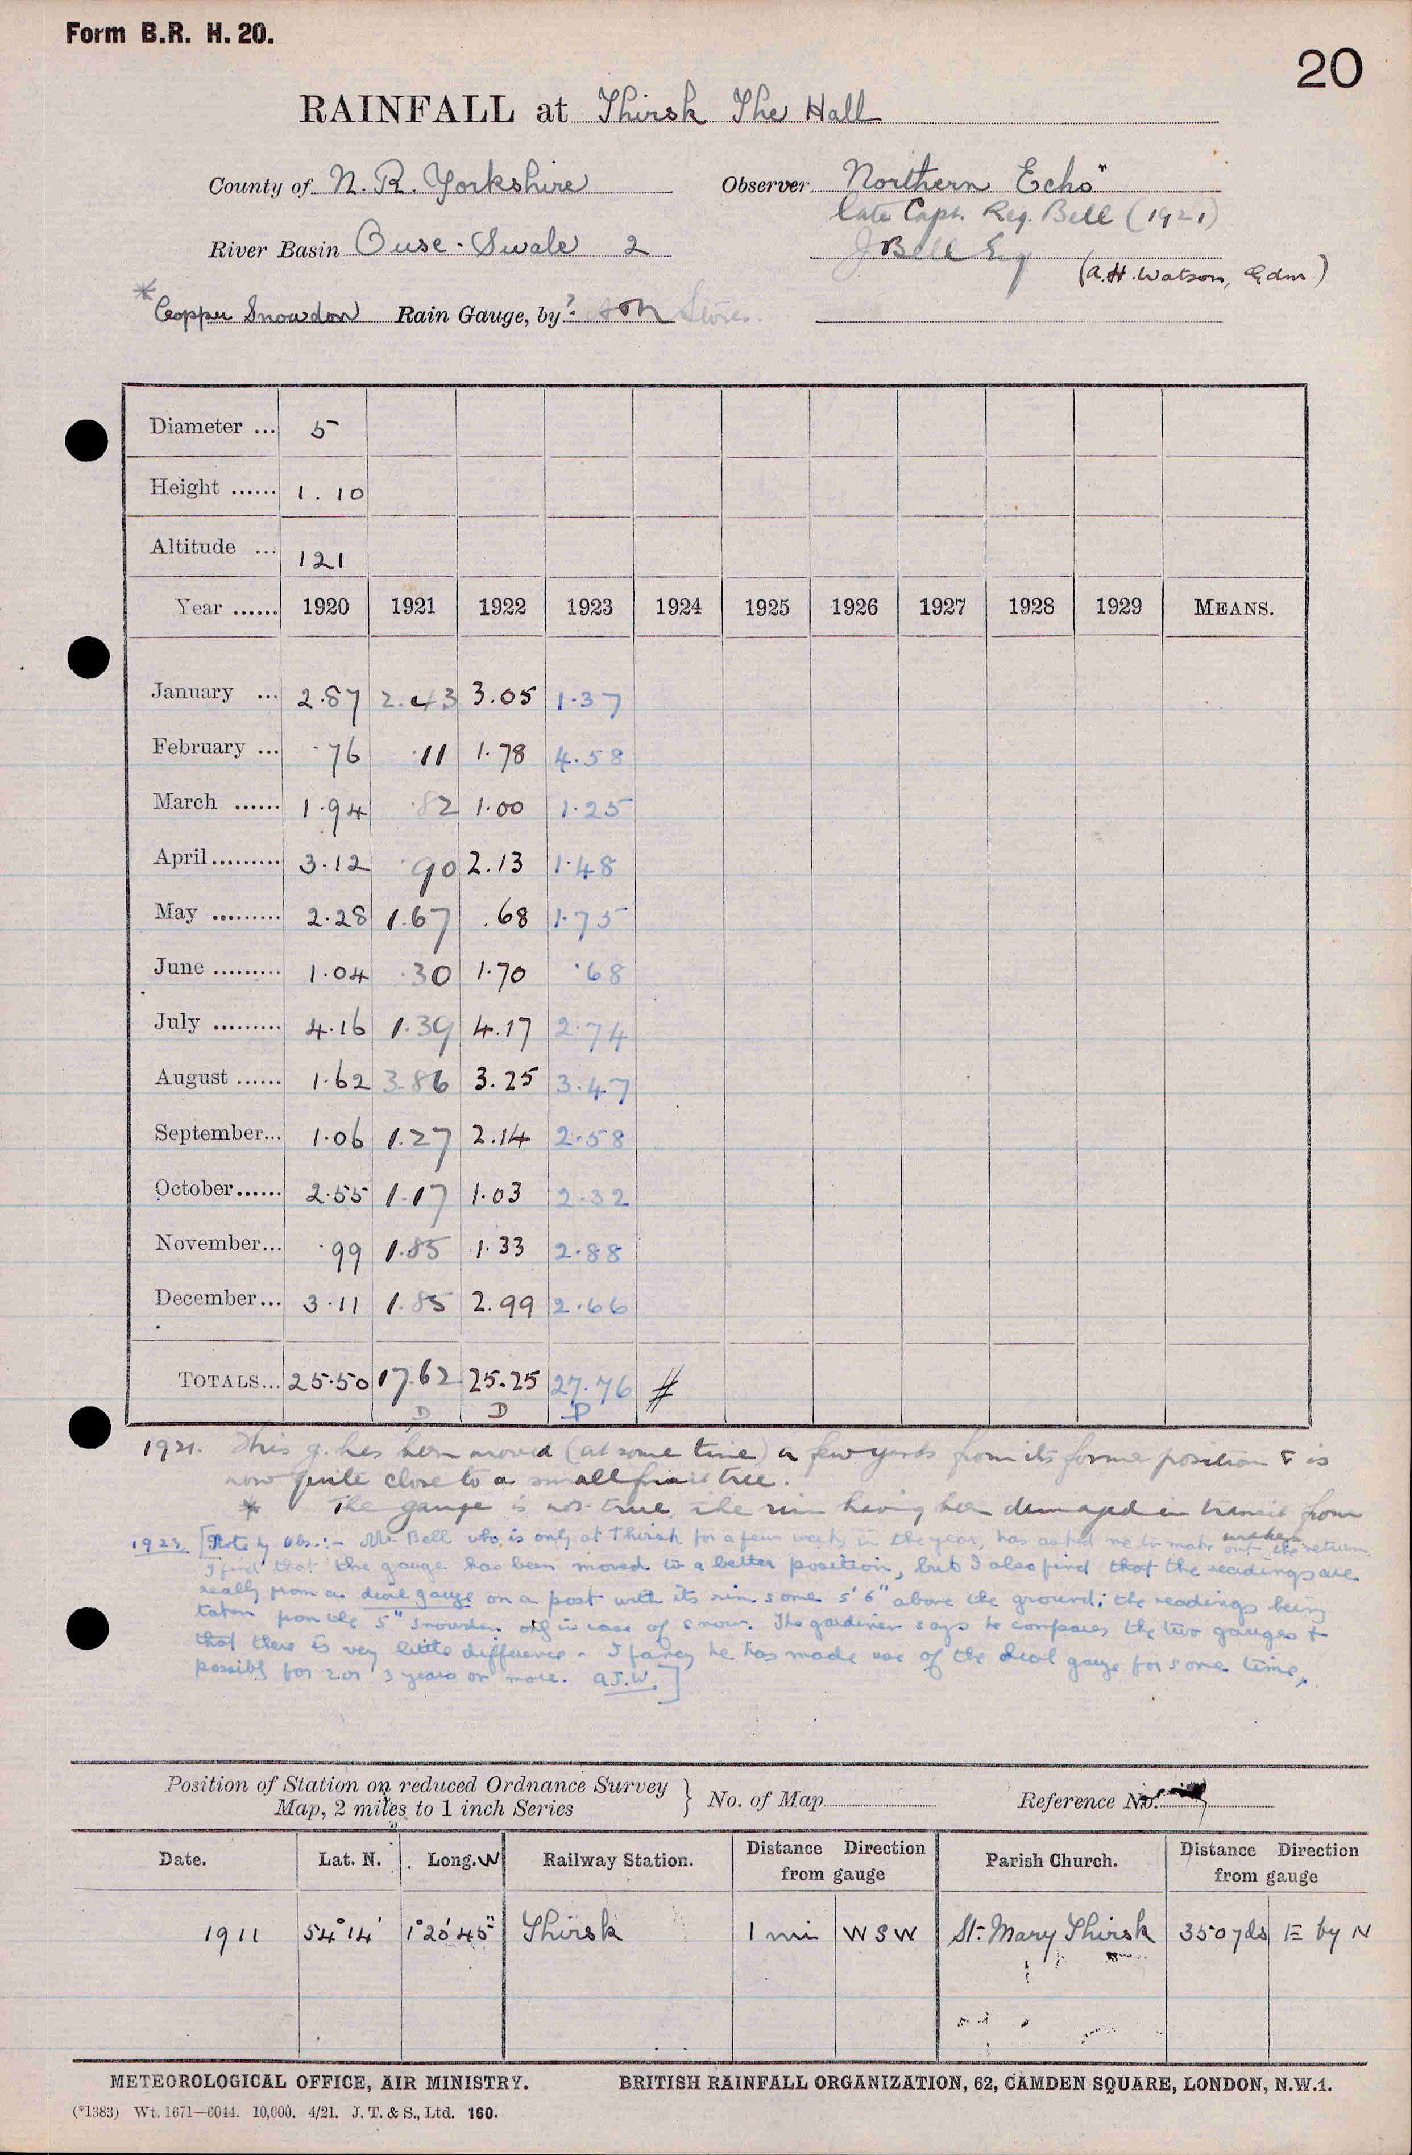 Form B.R. H. 20.
20
RAINFALL at Thirsk The Hall
County of N. R. Yorkshire Observer Northern Echo"
late Capt. Reg. Bell (1921)
River Basin Ouse - Swale 2 J Bell Esq
(A. H. Watson, Gdnr.)
* Copper Snowdon Rain Gauge, by ? Stores.
Diameter ... 5
Height ...... 1 . 10
Altitude ... 121
Year ...... 1920 1921 1922 1923 1924 1925 1926 1927 1928 1929 MEANS.
January ... 2.87 2.43 3.05 1.37
February ... .76 .11 1.78 4.58
March ...... 1.94 .82 1.00 1.25
April......... 3.12 .90 2.13 1.48
May ......... 2.28 1.67 .68 1.75
June ......... 1.04 .30 1.70 .68
July ......... 4.16 1.39 4.17 2.74
August ...... 1.62 3.86 3.25 3.47
September... 1.06 1.27 2.14 2.58
October...... 2.55 1.17 1.03 2.32
November... .99 1.85 1.33 2.88
December... 3.11 1.85 2.99 2.66
TOTALS... 25.50 17.62 25.25 27.76 #
D D D
1921. This g. has been moved (at some time) a few yards from its former position & is
now quite close to a small fruit tree.
* The gauge is not true, the rim having been damaged in transit from
makers
1923 [Note by Obs.:- Mr Bell who is only at Thirsk for a few weeks in the year, has asked me to make out the return.
I find that the gauge has been moved to a better position, but I also find that the readings are
really from a dial gauge on a post with its rim some 5' 6" above the ground; the readings being
taken from the 5" Snowdon only in case of snow. The gardener says he compares the two gauges &
that there is very little difference. I fancy he has made use of the dial gauge for some time,
possibly for 2 or 3 years or more. A.J.W.]
Position of Station on reduced Ordnance Survey
Map, 2 miles to 1 inch Series } No. of Map Reference No.
Date. Lat. N. Long. W Railway Station. Distance Direction from gauge Parish Church. Distance Direction from gauge
1911 54° 14' 1° 20' 45" Thirsk 1 mi W S W St. Mary Thirsk 350 yds E by N
METEOROLOGICAL OFFICE, AIR MINISTRY. BRITISH RAINFALL ORGANIZATION, 62, CAMDEN SQUARE, LONDON, N.W.1.
(*1383) Wt. 1671—6044. 10,000. 4/21. J. T. & S., Ltd. 160.